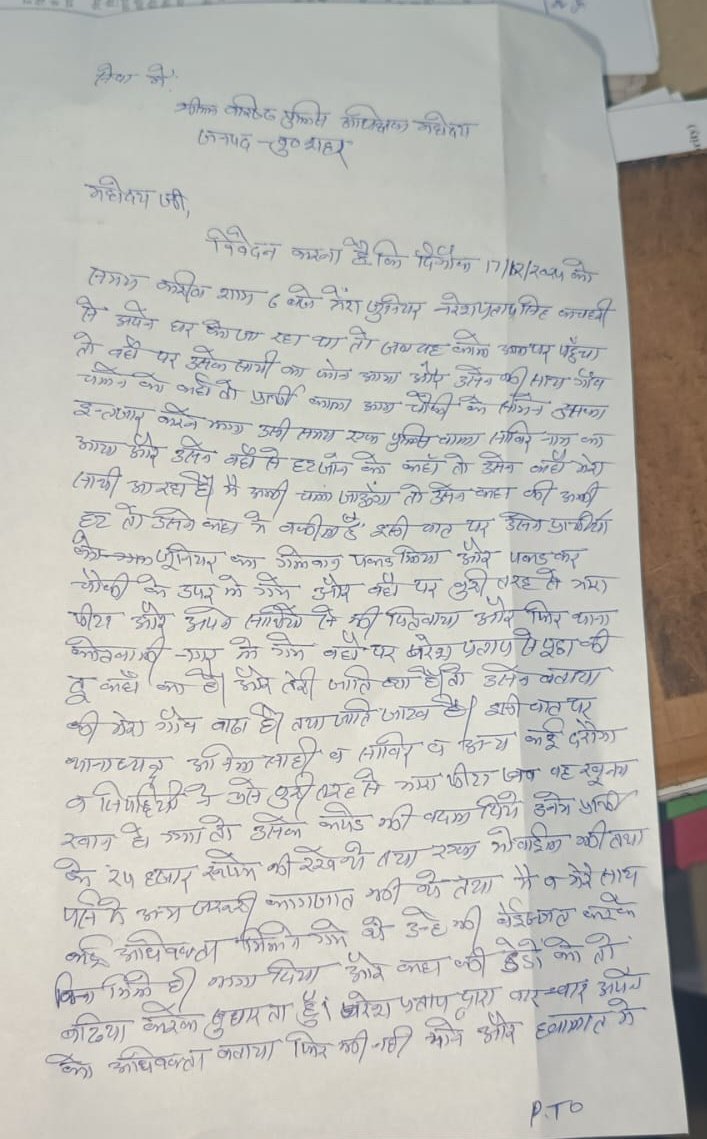 सेवा में,
श्रीमान वरिष्ठ पुलिस अधिक्षक महोदय
जनपद - बु० शहर
महोदय जी,
निवेदन करना है कि दिनाँक 17/12/2024 को
समय करीब शाम 6 बजे मेरा जुनियर नरेश प्रताप सिंह कचहरी
से अपने घर को जा रहा था तो जब वह काला आम पर पहुँचा
तो वहाँ पर उसके साथी का फोन आया और उसने भी साथ गाँव
चलने को कहाँ तो प्रार्थी काला आम चौकी के सामने उसका
इन्तजार करने लगा उसी समय एक पुलिस वाला साबिर नाम का
आया और उसने वहाँ से हट जाने को कहाँ तो उसने कहाँ मेरा
साथी आ रहा है। मैं अभी चला जाऊँगा तो उसने कहा की अभी
हट तो उसने कहा मैं वकील हूँ इसी बात पर उसने प्रार्थी
के जूनियर का गिरेवान पकड लिया और पकड कर
चौकी के उपर ले गये और वहाँ पर बुरी तरह से मारा
पीटा और अपने साथियों से भी पिटवाया और फिर थाना
कोतवाली नगर ले गये वहाँ पर नरेश प्रताप से पूछा की
तू कहाँ का है। और तेरी जाति क्या है तो उसने बताया
की मेरा गाँव वाढा है। तथा जाति जाटव है। इसी बात पर
थानाध्यक्ष अनिल साही व साबिर व अन्य कई दरोगा
व सिपाहियों ने उसे बुरी तरह से मारा पीटा जब वह खूनम
खान हो गया तो उसके कपडे भी बदल दिये उनमे प्रार्थी
के 25 हजार रूपये भी रखे थे तथा एक मोबाईल भी तथा
पर्स में अन्य जरूरी कागजात भी थे तथा मैं व मेरे साथ
कई अधिवक्ता मिलने गये थे उन्हे भी बेइज्जत करके
बिना मिले ही भगा दिया और कहा की ढेडो को तो
बढिया करके सुधारता हूँ। नरेश प्रताप द्वारा बार-बार अपने
को अधिवक्ता बताया फिर भी नही माने और हवालात में
P.T.O